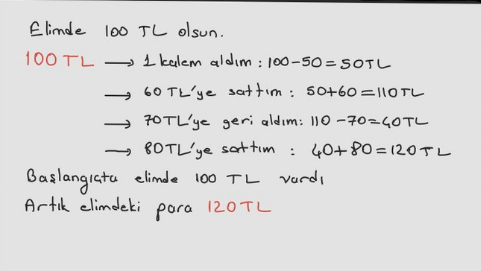 Elimde 100 TL olsun.
100 TL → 1 kalem aldım : 100-50=50TL
→ 60 TL'ye sattım : 50+60=110TL
→ 70TL'ye geri aldım: 110-70=40TL
→ 80TL'ye sattım : 40+80=120TL
Başlangıçta elimde 100 TL vardı
Artık elimdeki para 120TL